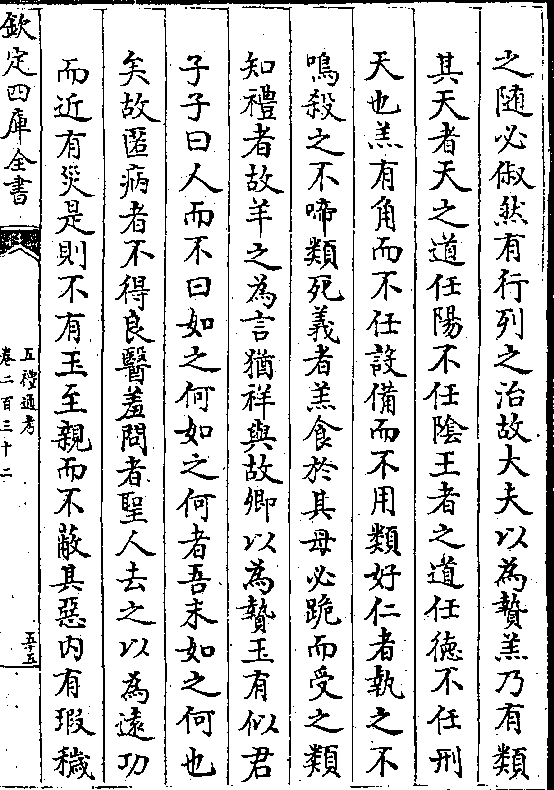 之隨必俶然有行列之治故大夫以為贄羔乃有類
其天者天之道任陽不任陰王者之道任徳不任刑
天也羔有角而不任設備而不用類好仁者執之不
鳴殺之不啼類死義者羔食於其母必跪而受之類
知禮者故羊之為言猶祥與故卿以為贄玉有似君
子子曰人而不曰如之何如之何者吾末如之何也
矣故匿病者不得良醫羞問者聖人去之以為逺功
而近有災是則不有玉至親而不蔽其惡内有瑕穢
欽定四庫全書
五禮通考
卷二百三十二
五十五